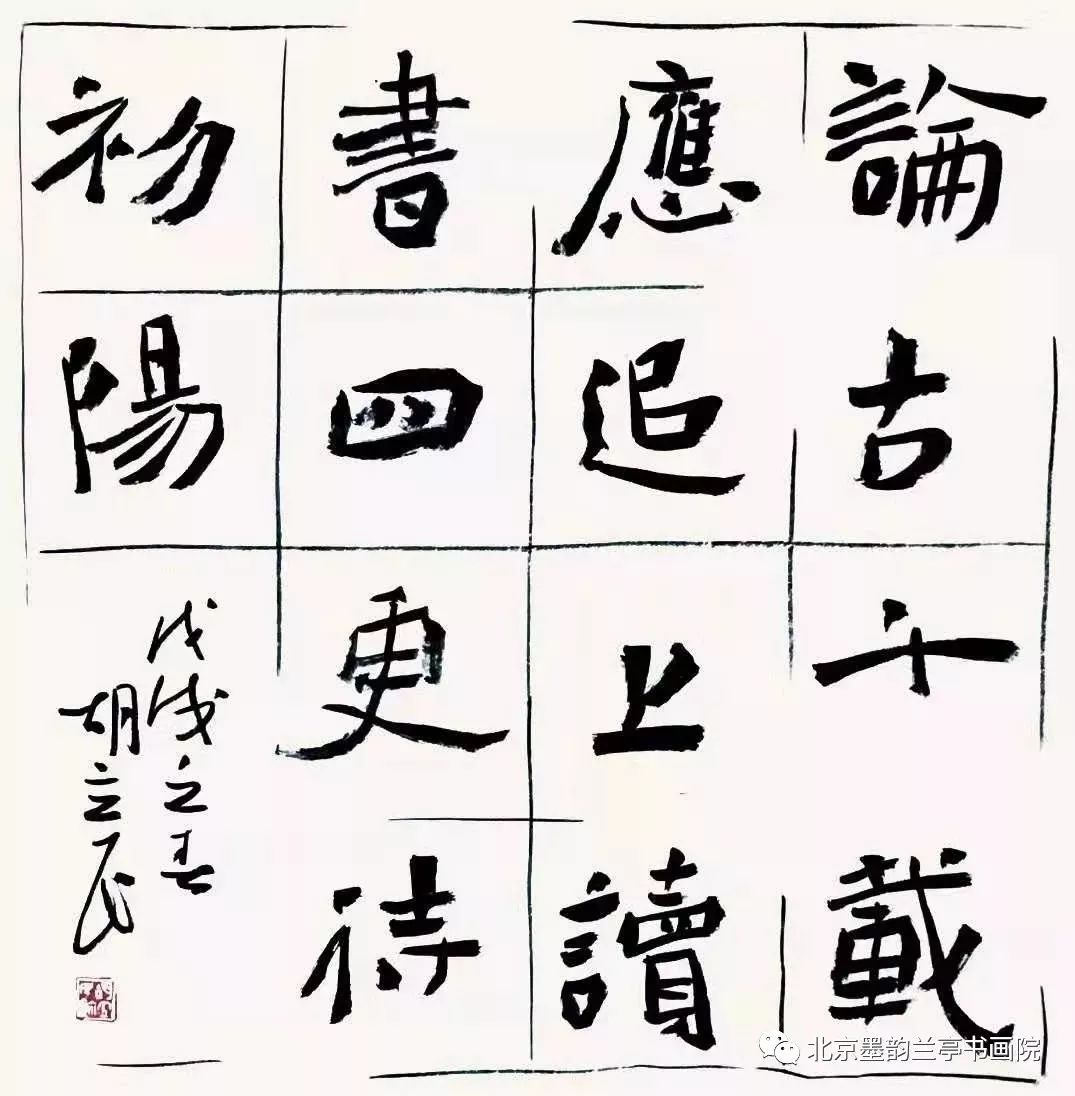 論古千載
應追上讀
書四更待
初陽
戊戌之春
胡立民
北京墨韵兰亭书画院